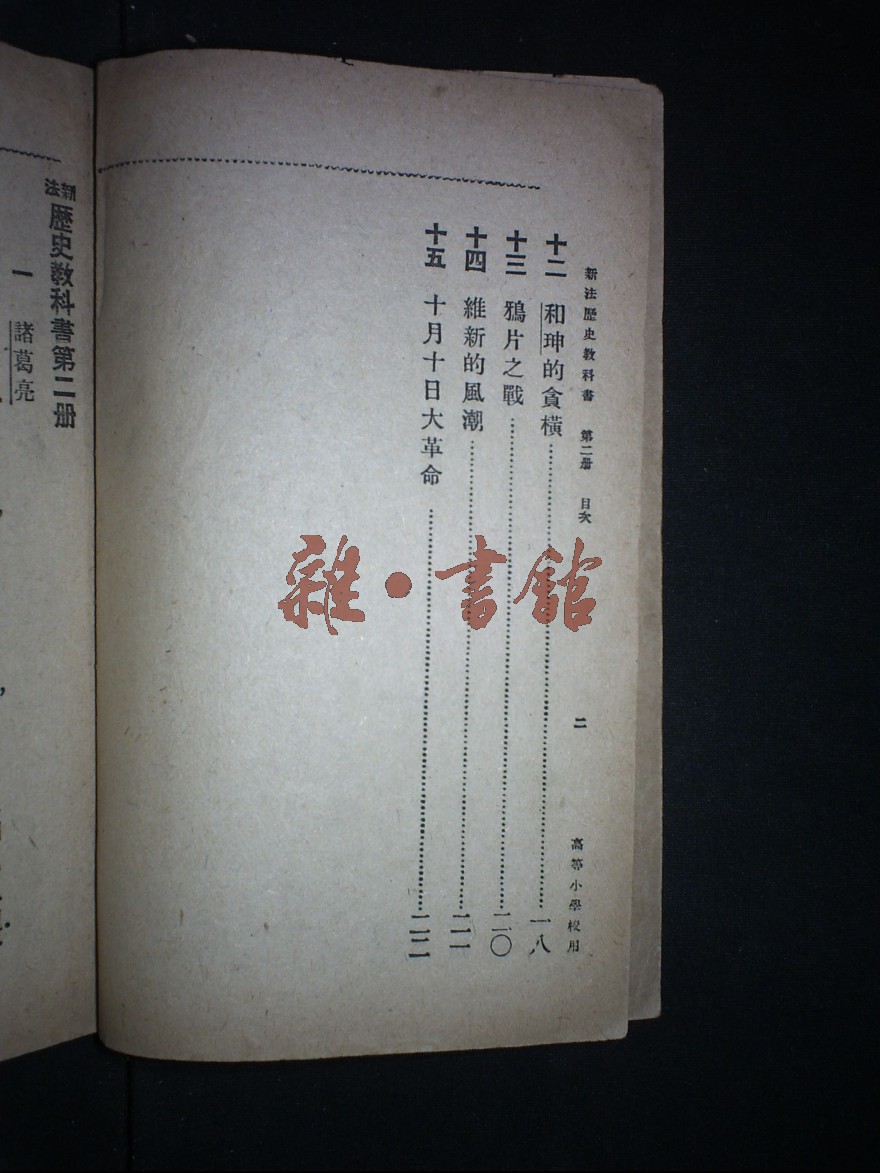 新法歷史教科書 第二册 目次 二 高等小學校用
十二 和珅的貪橫 一八
十三 鴉片之戰 二〇
十四 維新的風潮 二一
十五 十月十日大革命 二二
新法歷史教科書第二册
一 諸葛亮
雜·書館